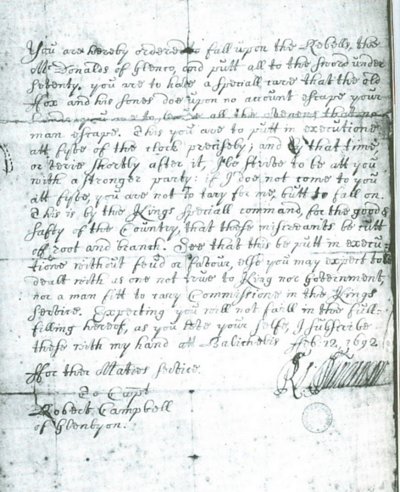 You are hereby ordered to fall upon the Rebells, the
McDonalds of Glenco, and putt all to the sword under
seventy. you are to have a speciall care that the old
Fox and his sones doe upon no account escape your
hands, you are to secure all the avenues that no
man escape. This you are to putt in executione
att fyve of the clock precisely; and by that time,
or verie shortly after it, I'le strive to be att you
with a stronger party: if I doe not come to you
att fyve, you are not to tary for me, butt to fall on.
This is by the Kings speciall command, for the good &
safty of the Country, that these miscreants be cutt
off root and branch. See that this be putt in execu-
tione without feud or favour, else you may expect to be
dealt with as one not true to King nor Government,
nor a man fitt to cary Commissione in the Kings
service. Expecting you will not faill in the full-
filling hereof, as you love your selfe, I subscribe
these with my hand att Balicholis Feb: 12, 1692
For ther Maties service.
To Capt
Robert Campbell
of Glenlyon.